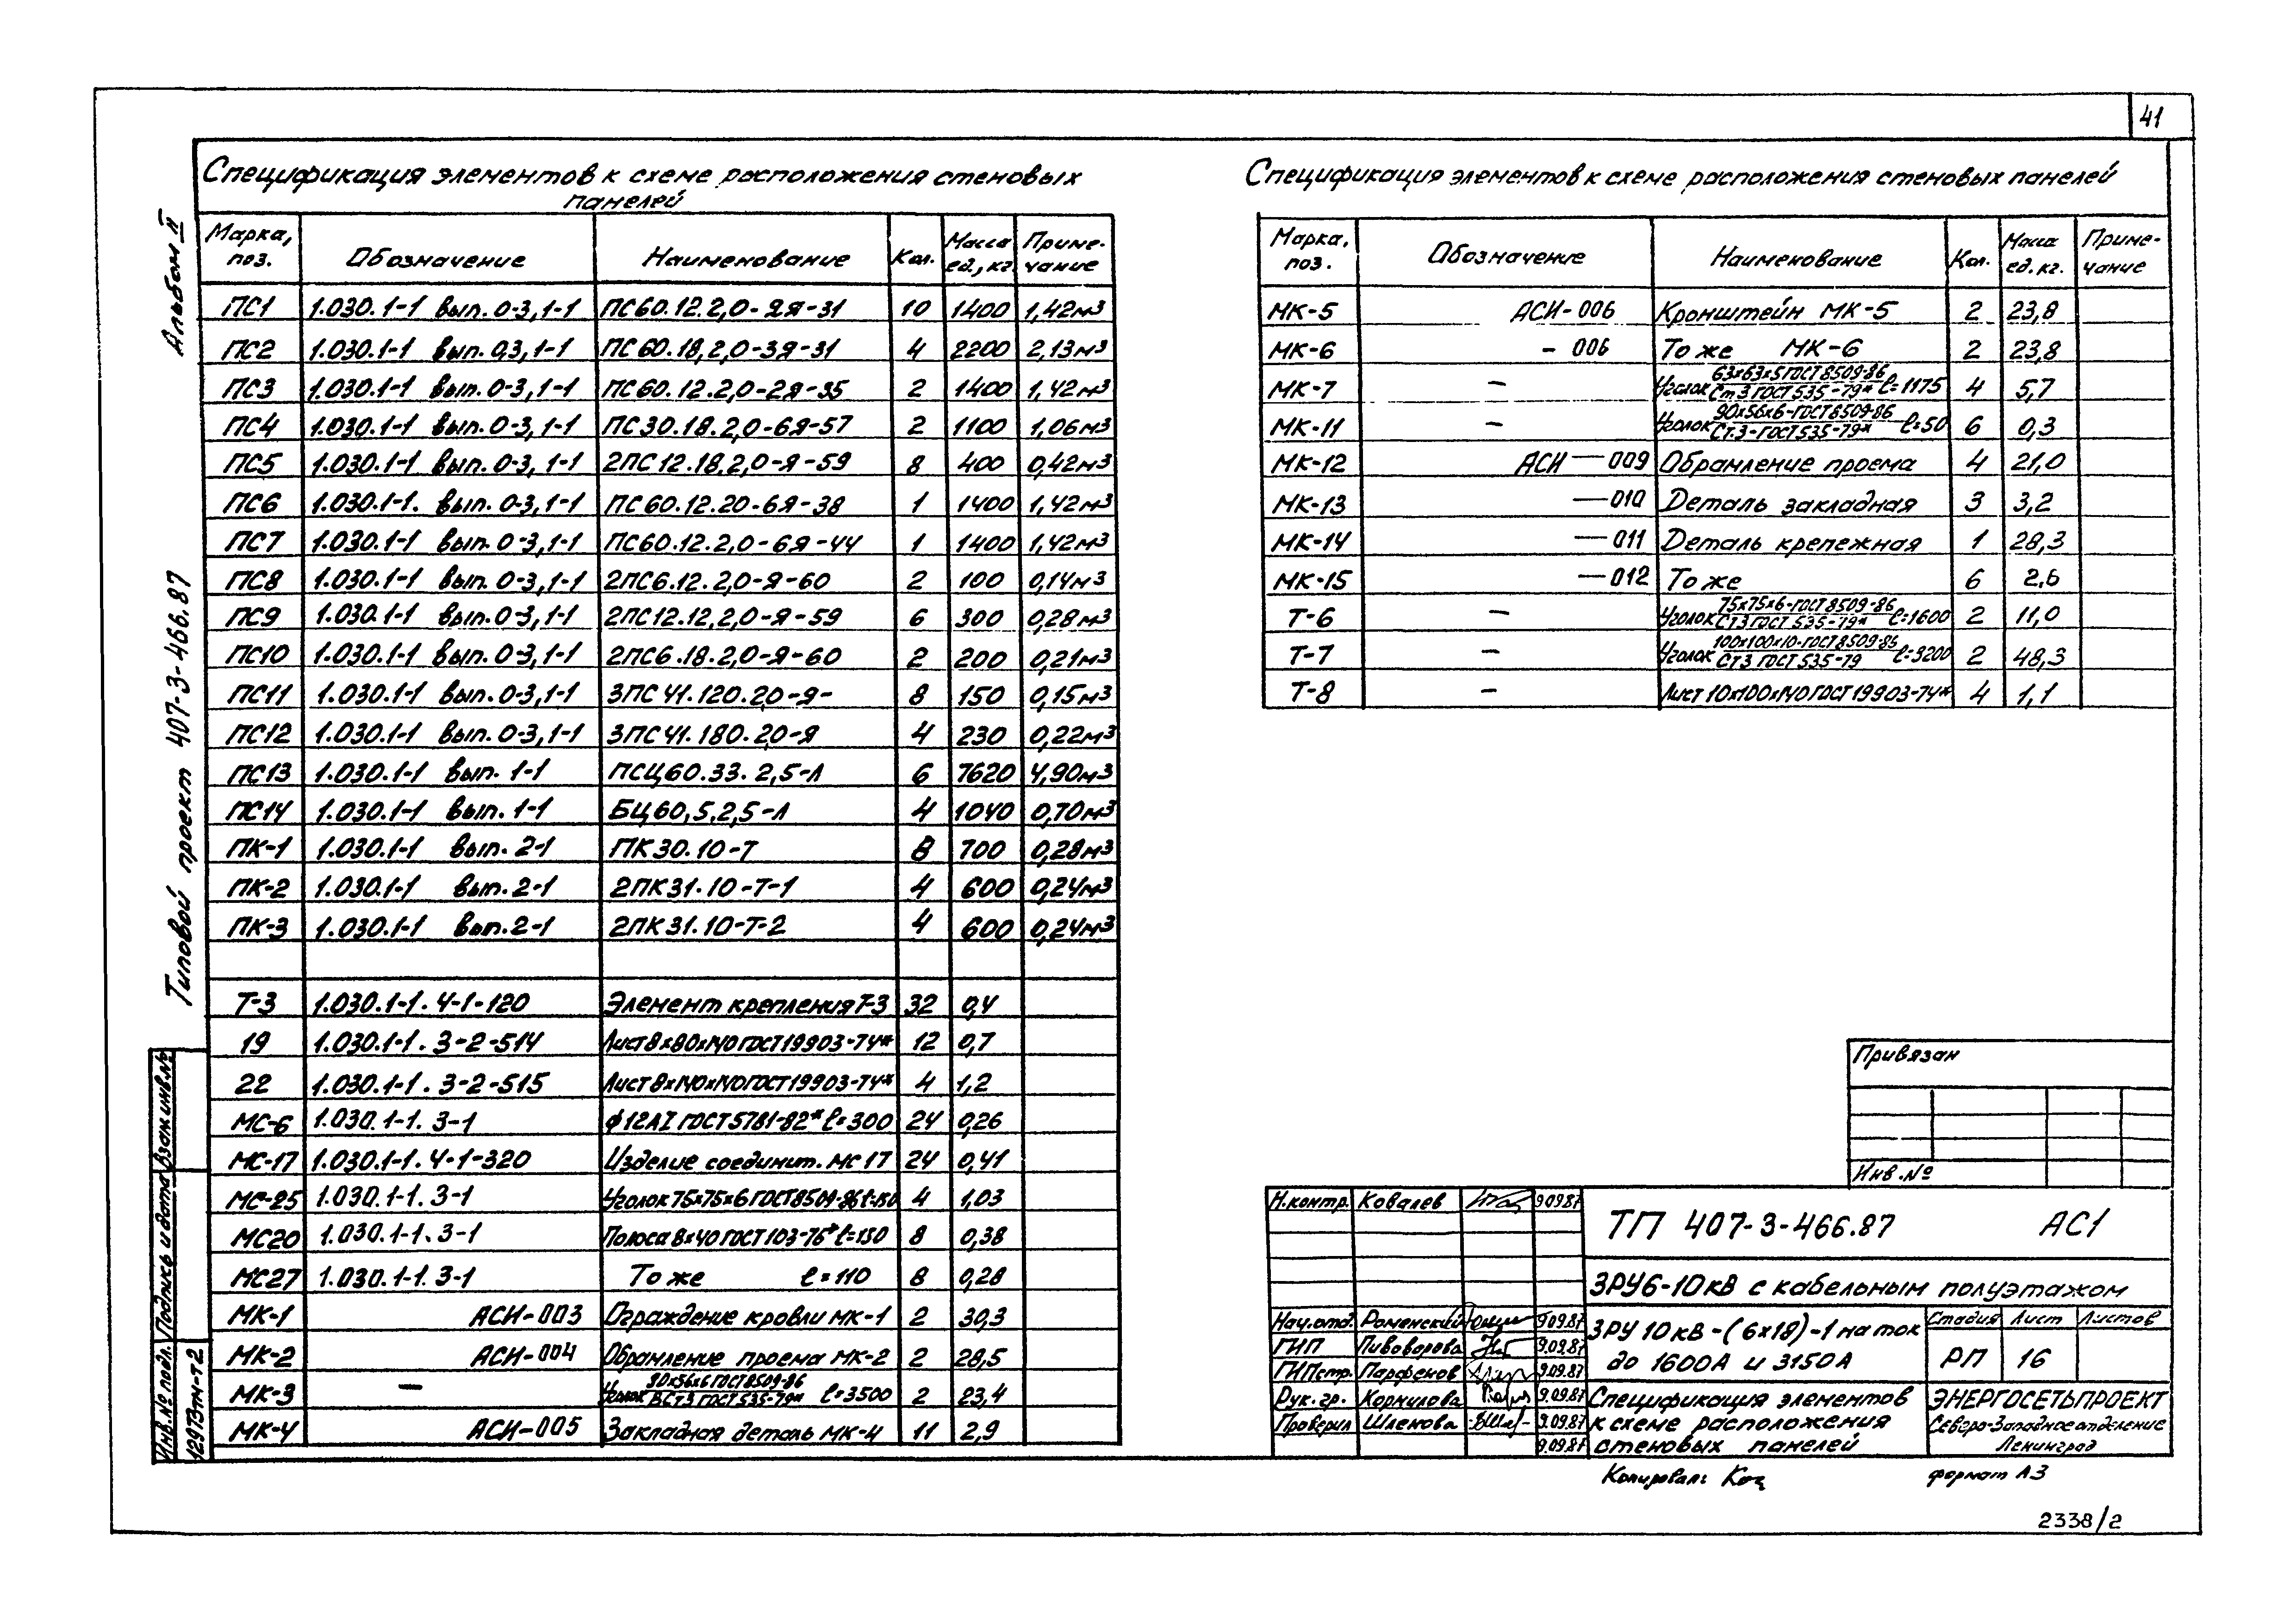 41
Альбом II
Типовой проект 407-3-466.87
Спецификация элементов к схеме расположения стеновых
панелей
Марка, поз. Обозначение Наименование Кол. Масса ед., кг. Приме-чание
ПС1 1.030.1-1 вып. 0-3, 1-1 ПС60.12.2,0-2Я-31 10 1400 1,42м³
ПС2 1.030.1-1 вып. 0,3, 1-1 ПС60.18,2,0-3Я-31 4 2200 2,13м³
ПС3 1.030.1-1 вып. 0-3, 1-1 ПС60.12.2,0-2Я-35 2 1400 1,42м³
ПС4 1.030.1-1 вып. 0-3, 1-1 ПС30.18.2,0-6Я-57 2 1100 1,06м³
ПС5 1.030.1-1 вып. 0-3, 1-1 2ПС12.18.2,0-Я-59 8 400 0,42м³
ПС6 1.030.1-1. вып. 0-3, 1-1 ПС60.12.20-6Я-38 1 1400 1,42м³
ПС7 1.030.1-1 вып. 0-3, 1-1 ПС60.12.2,0-6Я-44 1 1400 1,42м³
ПС8 1.030.1-1 вып. 0-3, 1-1 2ПС6.12.2,0-Я-60 2 100 0,14м³
ПС9 1.030.1-1 вып. 0-3, 1-1 2ПС12.12.2,0-Я-59 6 300 0,28м³
ПС10 1.030.1-1 вып. 0-3, 1-1 2ПС6.18.2,0-Я-60 2 200 0,21м³
ПС11 1.030.1-1 вып. 0-3, 1-1 3ПС41.120.2,0-Я- 8 150 0,15м³
ПС12 1.030.1-1 вып. 0-3, 1-1 3ПС41.180.2,0-Я 4 230 0,22м³
ПС13 1.030.1-1 вып. 1-1 ПСЦ60.33.2,5-Л 6 7620 4,90м³
ПС14 1.030.1-1 вып. 1-1 БЦ60,5,2,5-Л 4 1040 0,70м³
ПК-1 1.030.1-1 вып. 2-1 ПК30.10-Т 8 700 0,28м³
ПК-2 1.030.1-1 вып. 2-1 2ПК31.10-Т-1 4 600 0,24м³
ПК-3 1.030.1-1 вып. 2-1 2ПК31.10-Т-2 4 600 0,24м³
Т-3 1.030.1-1.4-1-120 Элемент крепления Т-3 32 0,4
19 1.030.1-1.3-2-514 Лист 8х80х140 ГОСТ 19903-74* 12 0,7
22 1.030.1-1.3-2-515 Лист 8х140х140 ГОСТ 19903-74* 4 1,2
МС-6 1.030.1-1.3-1 ϕ12АI ГОСТ 5781-82* ℓ=300 24 0,26
МС-17 1.030.1-1.4-1-320 Изделие соединит. МС17 24 0,41
МС-25 1.030.1-1.3-1 Уголок 75х75х6 ГОСТ 8509-86 ℓ=150 4 1,03
МС20 1.030.1-1.3-1 Полоса 8х40 ГОСТ 103-76* ℓ=150 8 0,38
МС27 1.030.1-1.3-1 То же ℓ=110 8 0,28
МК-1 АСИ-003 Ограждение кровли МК-1 2 30,3
МК-2 АСИ-004 Обрамление проема МК-2 2 28,5
МК-3 - Уголок 90х56х6 ГОСТ 8509-86 / ВСт3 ГОСТ 535-79* ℓ=3500 2 23,4
МК-4 АСИ-005 Закладная деталь МК-4 11 2,9
Спецификация элементов к схеме расположения стеновых панелей
Марка, поз. Обозначение Наименование Кол. Масса ед. кг. Приме-чание
МК-5 АСИ-006 Кронштейн МК-5 2 23,8
МК-6 - 006 То же МК-6 2 23,8
МК-7 - Уголок 63х63х5 ГОСТ 8509-86 / Ст3 ГОСТ 535-79* ℓ=1175 4 5,7
МК-11 - Уголок 90х56х6-ГОСТ 8509-86 / Ст.3-ГОСТ 535-79* ℓ=50 6 0,3
МК-12 АСИ — 009 Обрамление проема 4 21,0
МК-13 — 010 Деталь закладная 3 3,2
МК-14 — 011 Деталь крепежная 1 28,3
МК-15 — 012 То же 6 2,6
Т-6 - Уголок 75х75х6-ГОСТ 8509-86 / Ст3 ГОСТ 535-79* ℓ=1600 2 11,0
Т-7 - Уголок 100х100х10-ГОСТ 8509-86 / Ст3 ГОСТ 535-79 ℓ=3200 2 48,3
Т-8 - Лист 10х100х140 ГОСТ 19903-74* 4 1,1
Привязан
Инв.№
Н.контр. Ковалев 9.09.87
Нач.отд. Роменский 9.09.87
ГИП Пивоварова 9.09.87
ГИПстр. Парфенов 9.09.87
Рук. гр. Корнилова 9.09.87
Проверил Шленова 9.09.87
9.09.87
ТП 407-3-466.87 АС1
ЗРУ6-10кВ с кабельным полуэтажом
ЗРУ 10кВ-(6х18)-1 на ток
до 1600А и 3150А
Стадия Лист Листов
РП 16
Спецификация элементов
к схеме расположения
стеновых панелей
ЭНЕРГОСЕТЬПРОЕКТ
Северо-Западное отделение
Ленинград
Взам.инв.№
Подпись и дата
Инв.№ подл.
12973тм-т2
Копировал: формат А3
2338/2